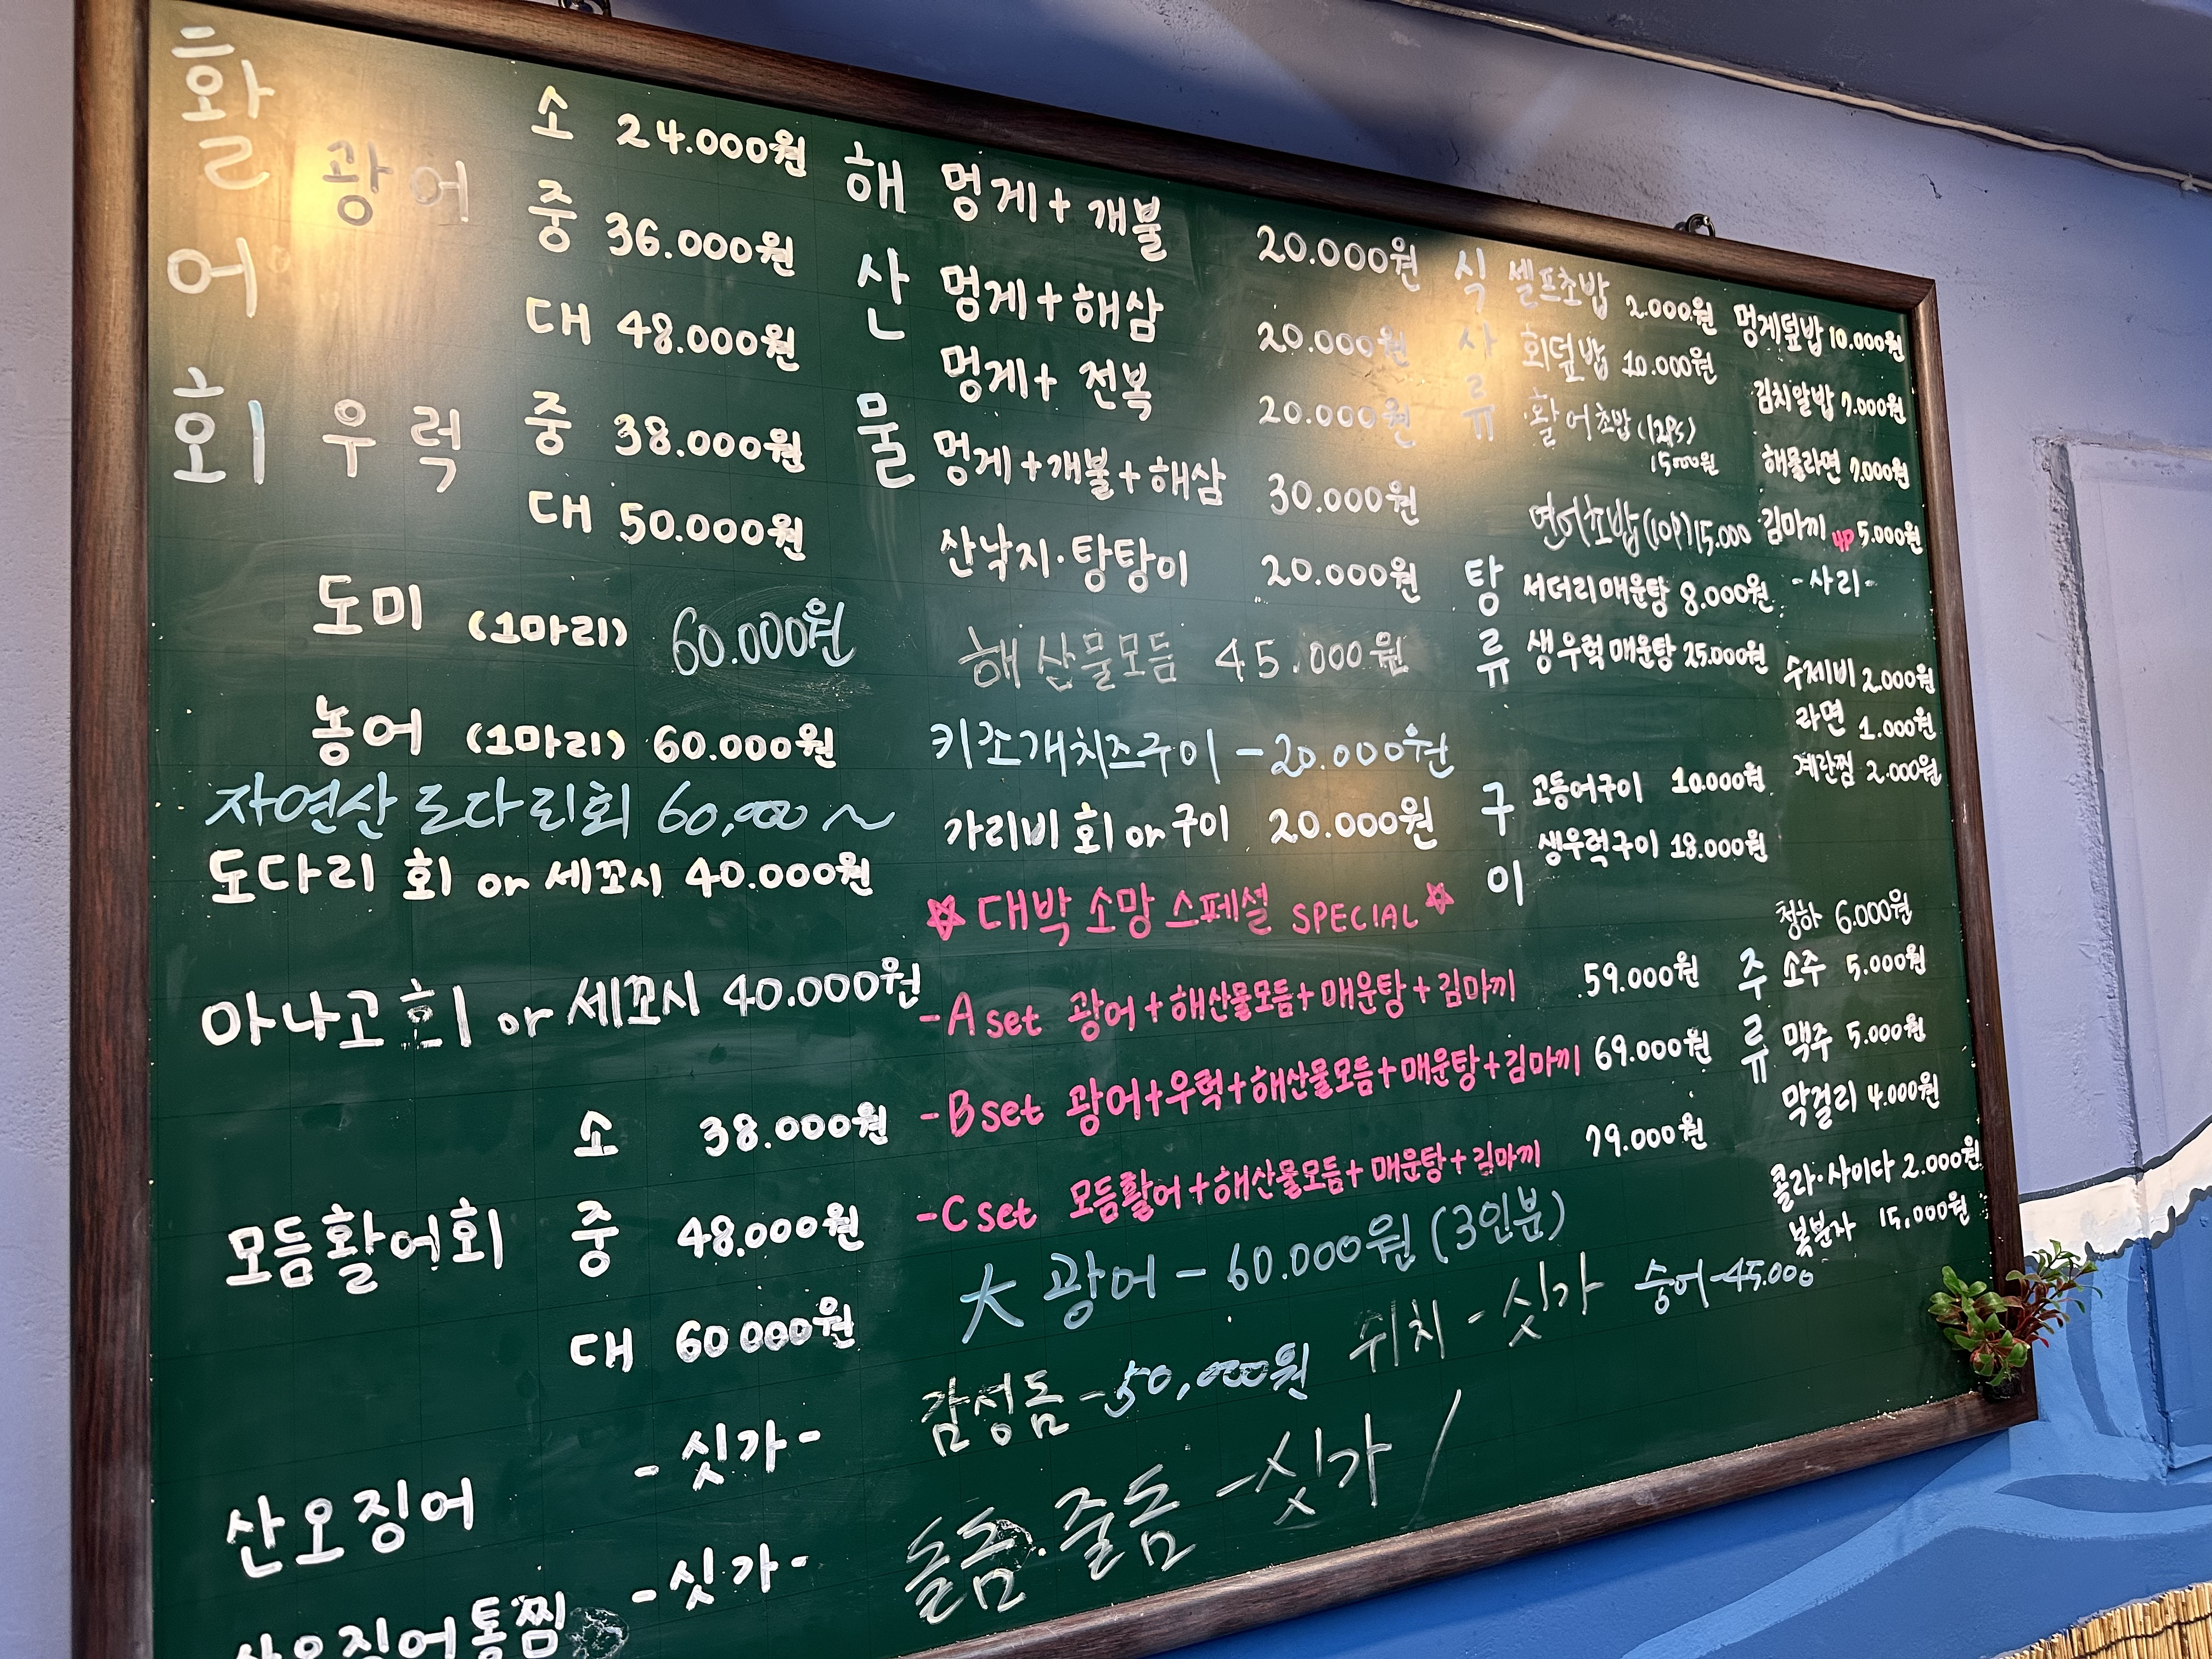 활어회
광어 소 24.000원
중 36.000원
대 48.000원
우럭 중 38.000원
대 50.000원
도미 (1마리) 60.000원
농어 (1마리) 60.000원
자연산 도다리회 60,000~
도다리 회 or 세꼬시 40.000원
아나고 회 or 세꼬시 40.000원
모듬활어회 소 38.000원
중 48.000원
대 60000원
산오징어 -싯가-
산오징어통찜 -싯가-
해산물
멍게+개불 20.000원
멍게+해삼 20.000원
멍게+전복 20.000원
멍게+개불+해삼 30.000원
산낙지·탕탕이 20.000원
해산물모듬 45.000원
키조개치즈구이 -20.000원
가리비 회 or 구이 20.000원
☆ 대박 소망 스페셜 SPECIAL ☆
-A set 광어+해산물모듬+매운탕+김마끼 59.000원
-B set 광어+우럭+해산물모듬+매운탕+김마끼 69.000원
-C set 모듬활어+해산물모듬+매운탕+김마끼 79.000원
大 광어 - 60.000원 (3인분)
감성돔 -50,000원 쥐치 - 싯가 숭어 -45.000
돌돔.줄돔 -싯가
식사류
셀프초밥 2.000원
회덮밥 10.000원
·활어초밥 (12PS)
15000원
연어초밥(10P)15.000
멍게덮밥 10.000원
김치알밥 7.000원
해물라면 7.000원
김마끼 4P 5.000원
-사리-
수제비 2.000원
라면 1.000원
계란찜 2.000원
탕류
서더리매운탕 8.000원
생우럭매운탕 25.000원
구이
고등어구이 10.000원
생우럭구이 18.000원
주류
청하 6.000원
소주 5.000원
맥주 5.000원
막걸리 4.000원
콜라·사이다 2.000원
복분자 15,000원